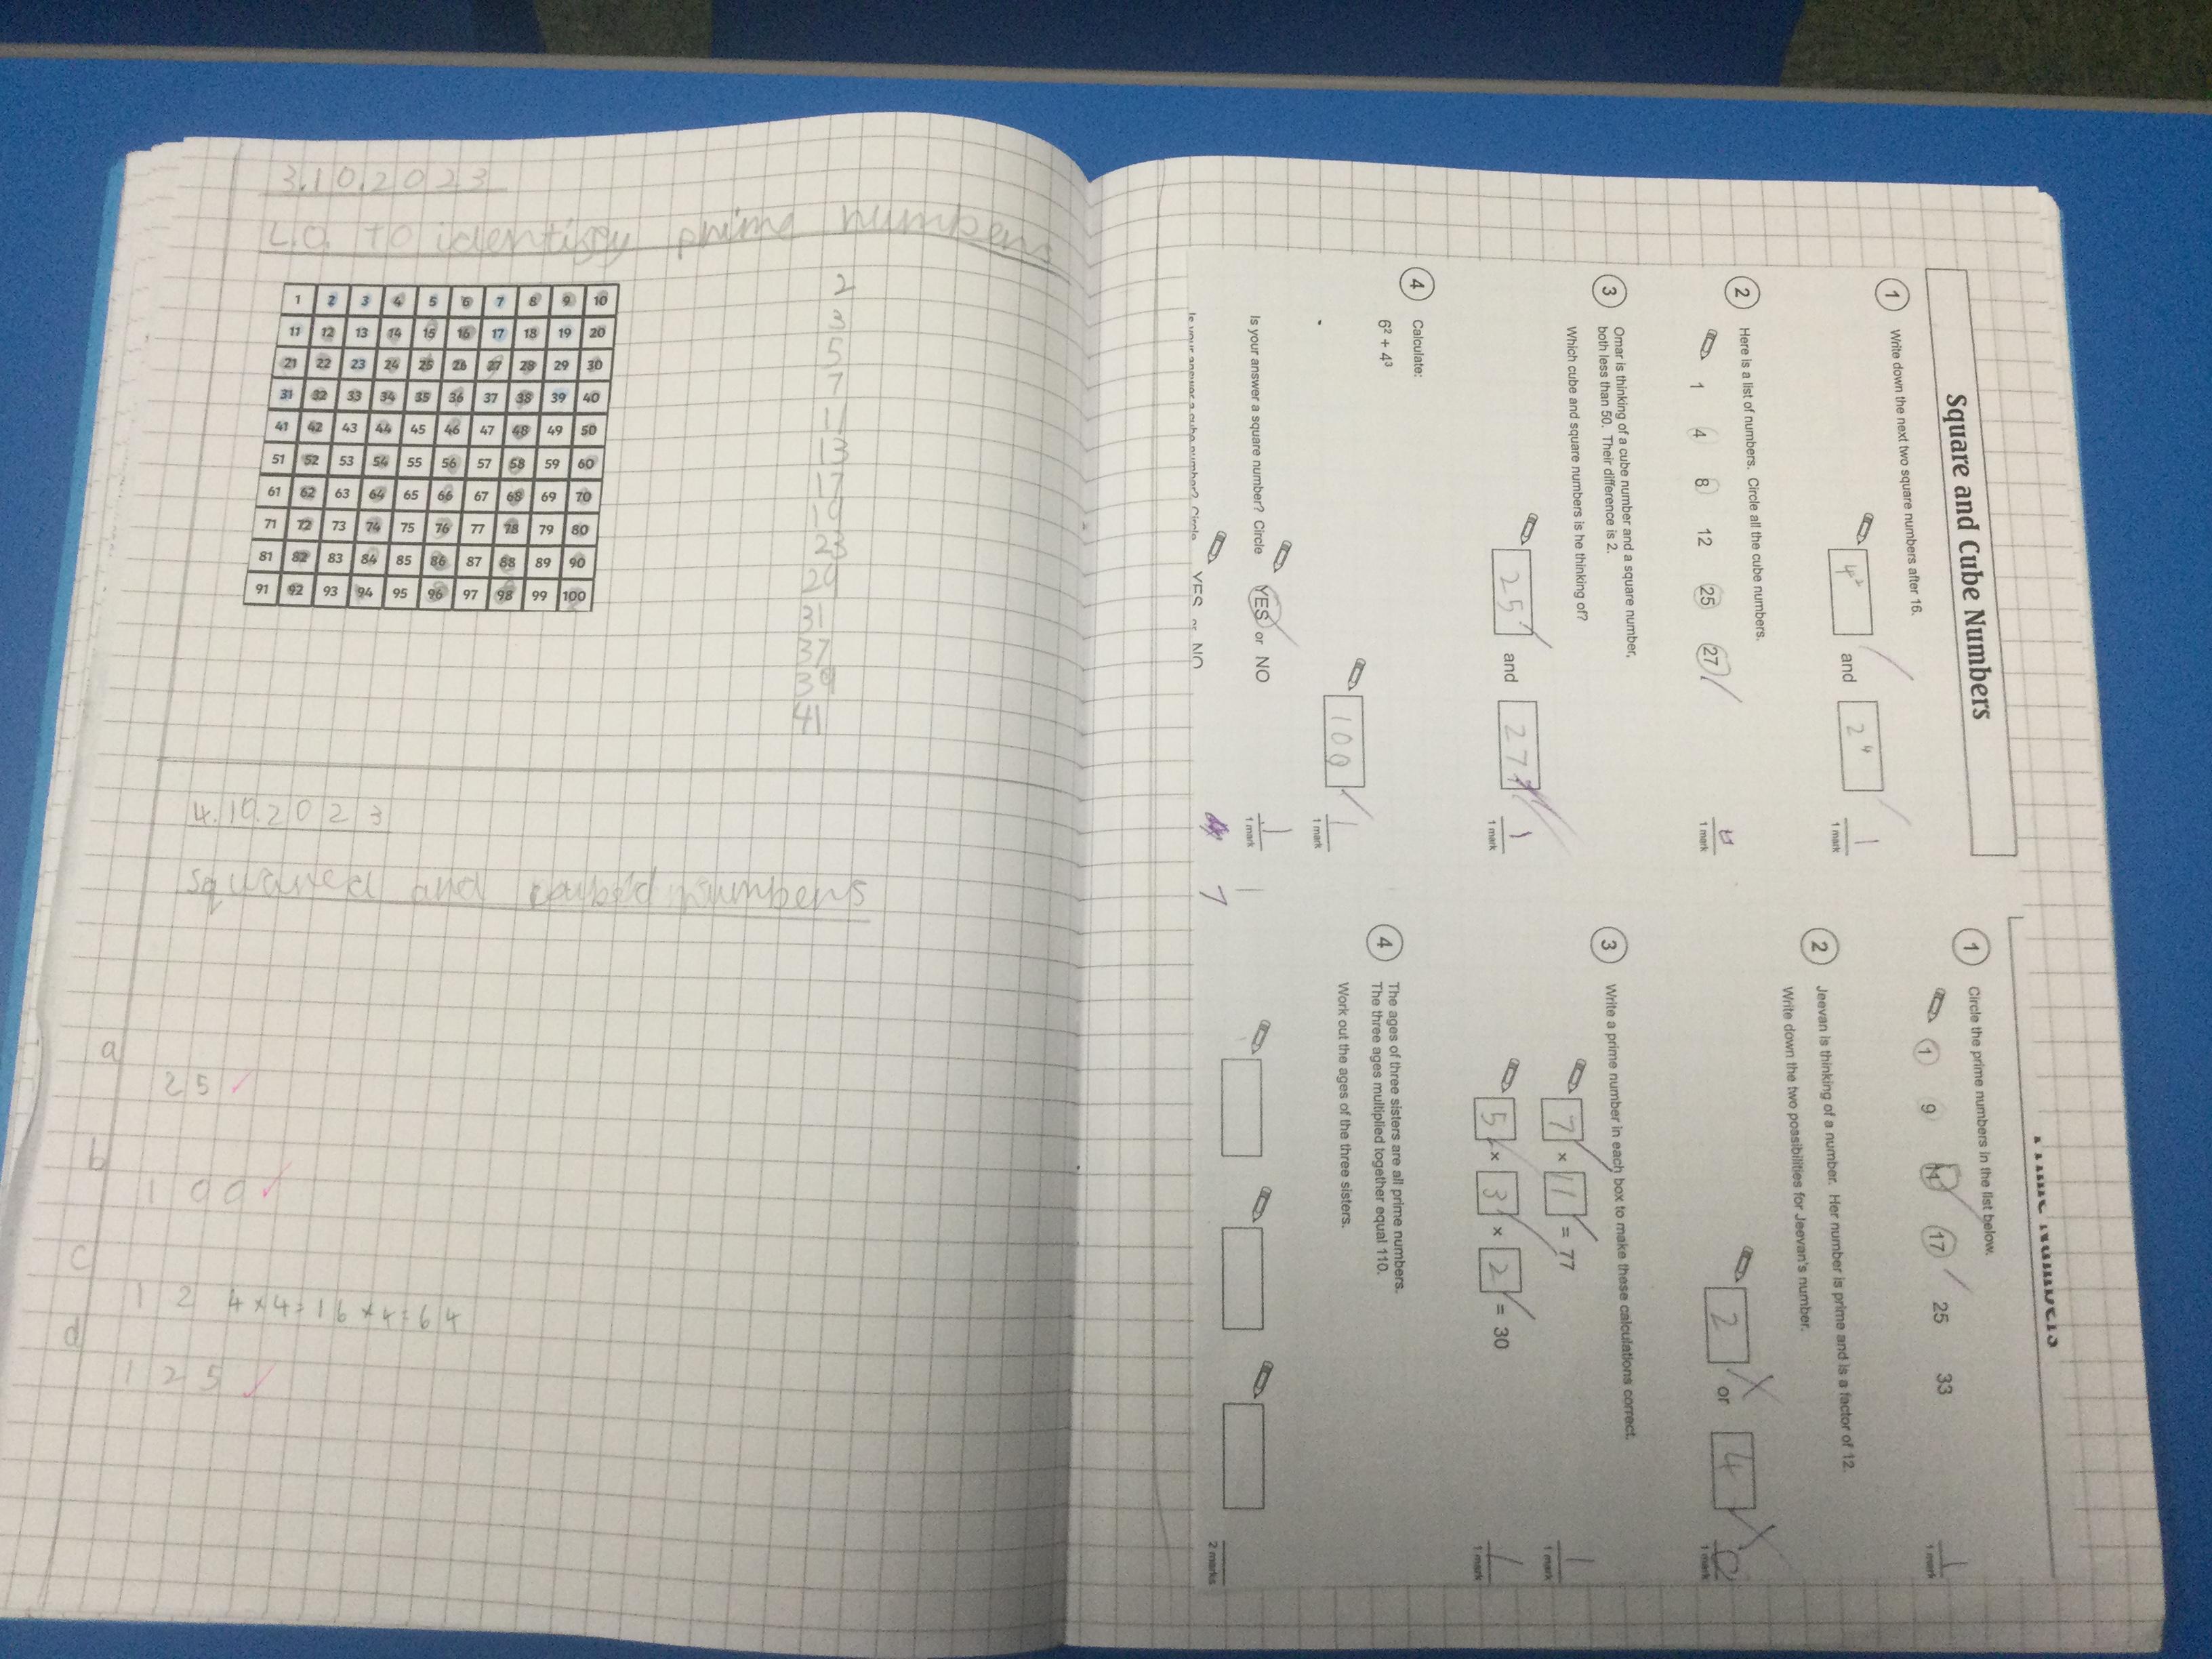 3.10.2023
L.O. to identify prime numbers
1 2 3 4 5 6 7 8 9 10
11 12 13 14 15 16 17 18 19 20
21 22 23 24 25 26 27 28 29 30
31 32 33 34 35 36 37 38 39 40
41 42 43 44 45 46 47 48 49 50
51 52 53 54 55 56 57 58 59 60
61 62 63 64 65 66 67 68 69 70
71 72 73 74 75 76 77 78 79 80
81 82 83 84 85 86 87 88 89 90
91 92 93 94 95 96 97 98 99 100
2
3
5
7
11
13
17
19
23
29
31
37
39
41
4.10.2023
squared and cubed numbers
a
25
b
100
c
12 4×4=16×4=64
d
125
Square and Cube Numbers
1 Write down the next two square numbers after 16.
4² and 2⁴
1
1 mark
2 Here is a list of numbers. Circle all the cube numbers.
1 4 8 12 25 27
1 mark
3 Omar is thinking of a cube number and a square number,
both less than 50. Their difference is 2.
Which cube and square numbers is he thinking of?
25 and 27
1
1 mark
4 Calculate:
6² + 4³
100
1
1 mark
Is your answer a square number? Circle YES or NO
1
1 mark
Is your answer a cube number? Circle YES or NO
1
7
Prime Numbers
1 Circle the prime numbers in the list below.
1 9 14 17 25 33
1
1 mark
2 Jeevan is thinking of a number. Her number is prime and is a factor of 12.
Write down the two possibilities for Jeevan's number.
2 or 4
0
1 mark
3 Write a prime number in each box to make these calculations correct.
7 × 11 = 77
1
1 mark
5 × 3 × 2 = 30
1
1 mark
4 The ages of three sisters are all prime numbers.
The three ages multiplied together equal 110.
Work out the ages of the three sisters.
2 marks